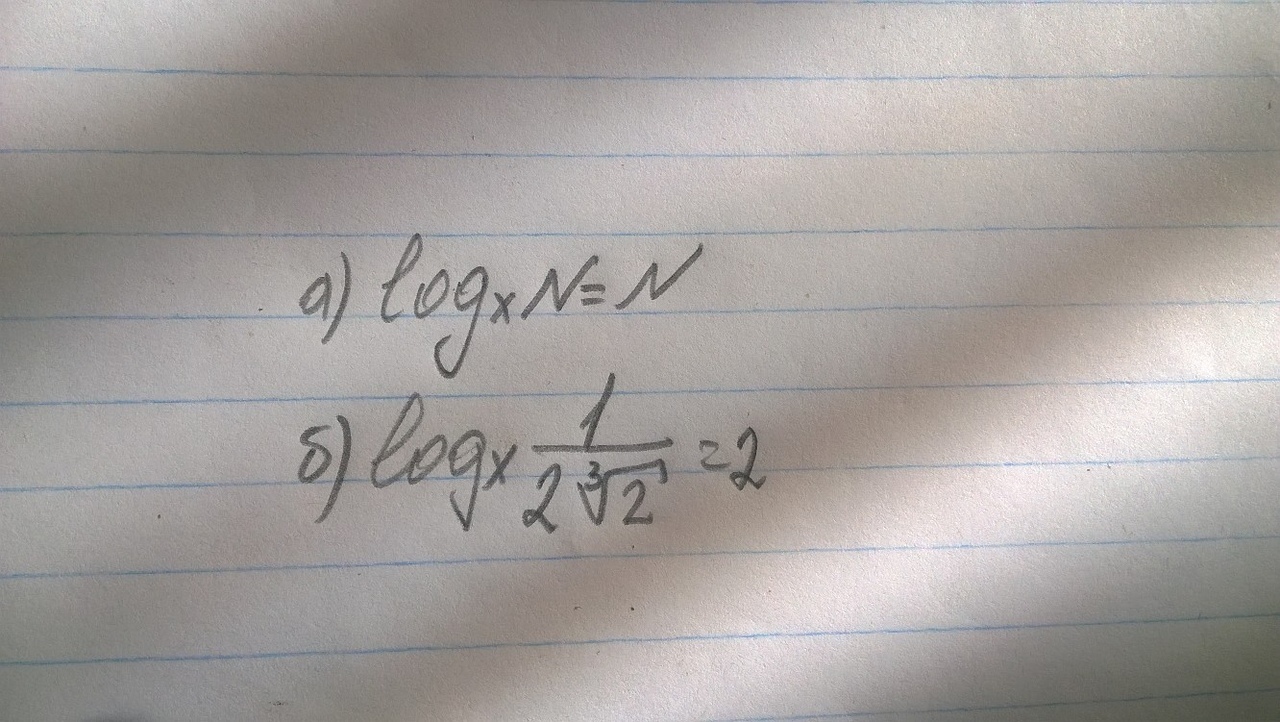 а) logₓ N = N
б) logₓ 1/(2∛2) = 2